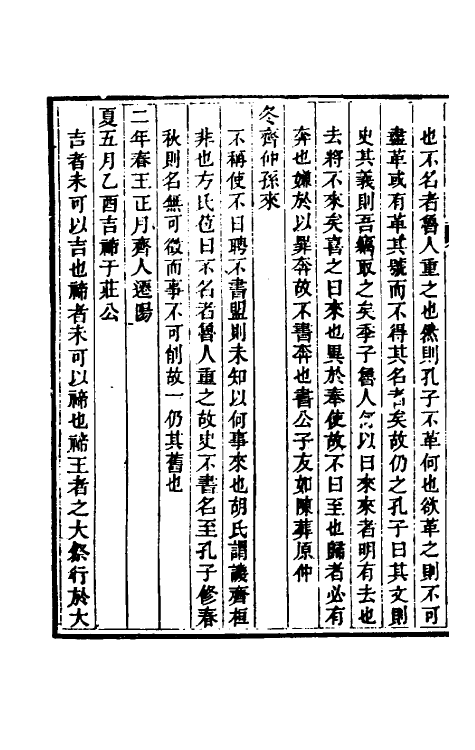 也不名者魯人重之也然則孔子不革何也欲革之則不可
盡革或有革其號而不得其名者矣故仍之孔子曰其文則
史其義則吾竊取之矣季子魯人何以曰來來者明有去也
去將不來矣喜之曰來也異於奉使故不曰至也歸者必有
奔也嫌於以罪奔故不書奔也書公子友如陳葬原仲
冬齊仲孫來
不稱使不曰聘不書盟則未知以何事來也胡氏謂譏齊桓
非也方氏苞曰不名者魯人重之故史不書名至孔子修春
秋則名無可徵而事不可削故一仍其舊也
二年春王正月齊人遷陽
夏五月乙酉吉禘于莊公
吉者未可以吉也禘者未可以禘也禘王者之大祭行於大